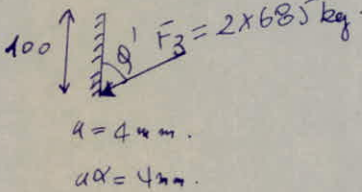 100
θ'
F̄3 = 2×685 kg
a = 4 mm.
aα = 4mm.